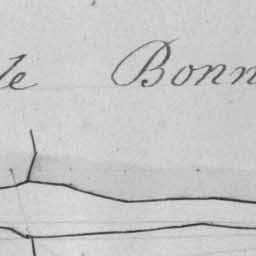 de Bonn